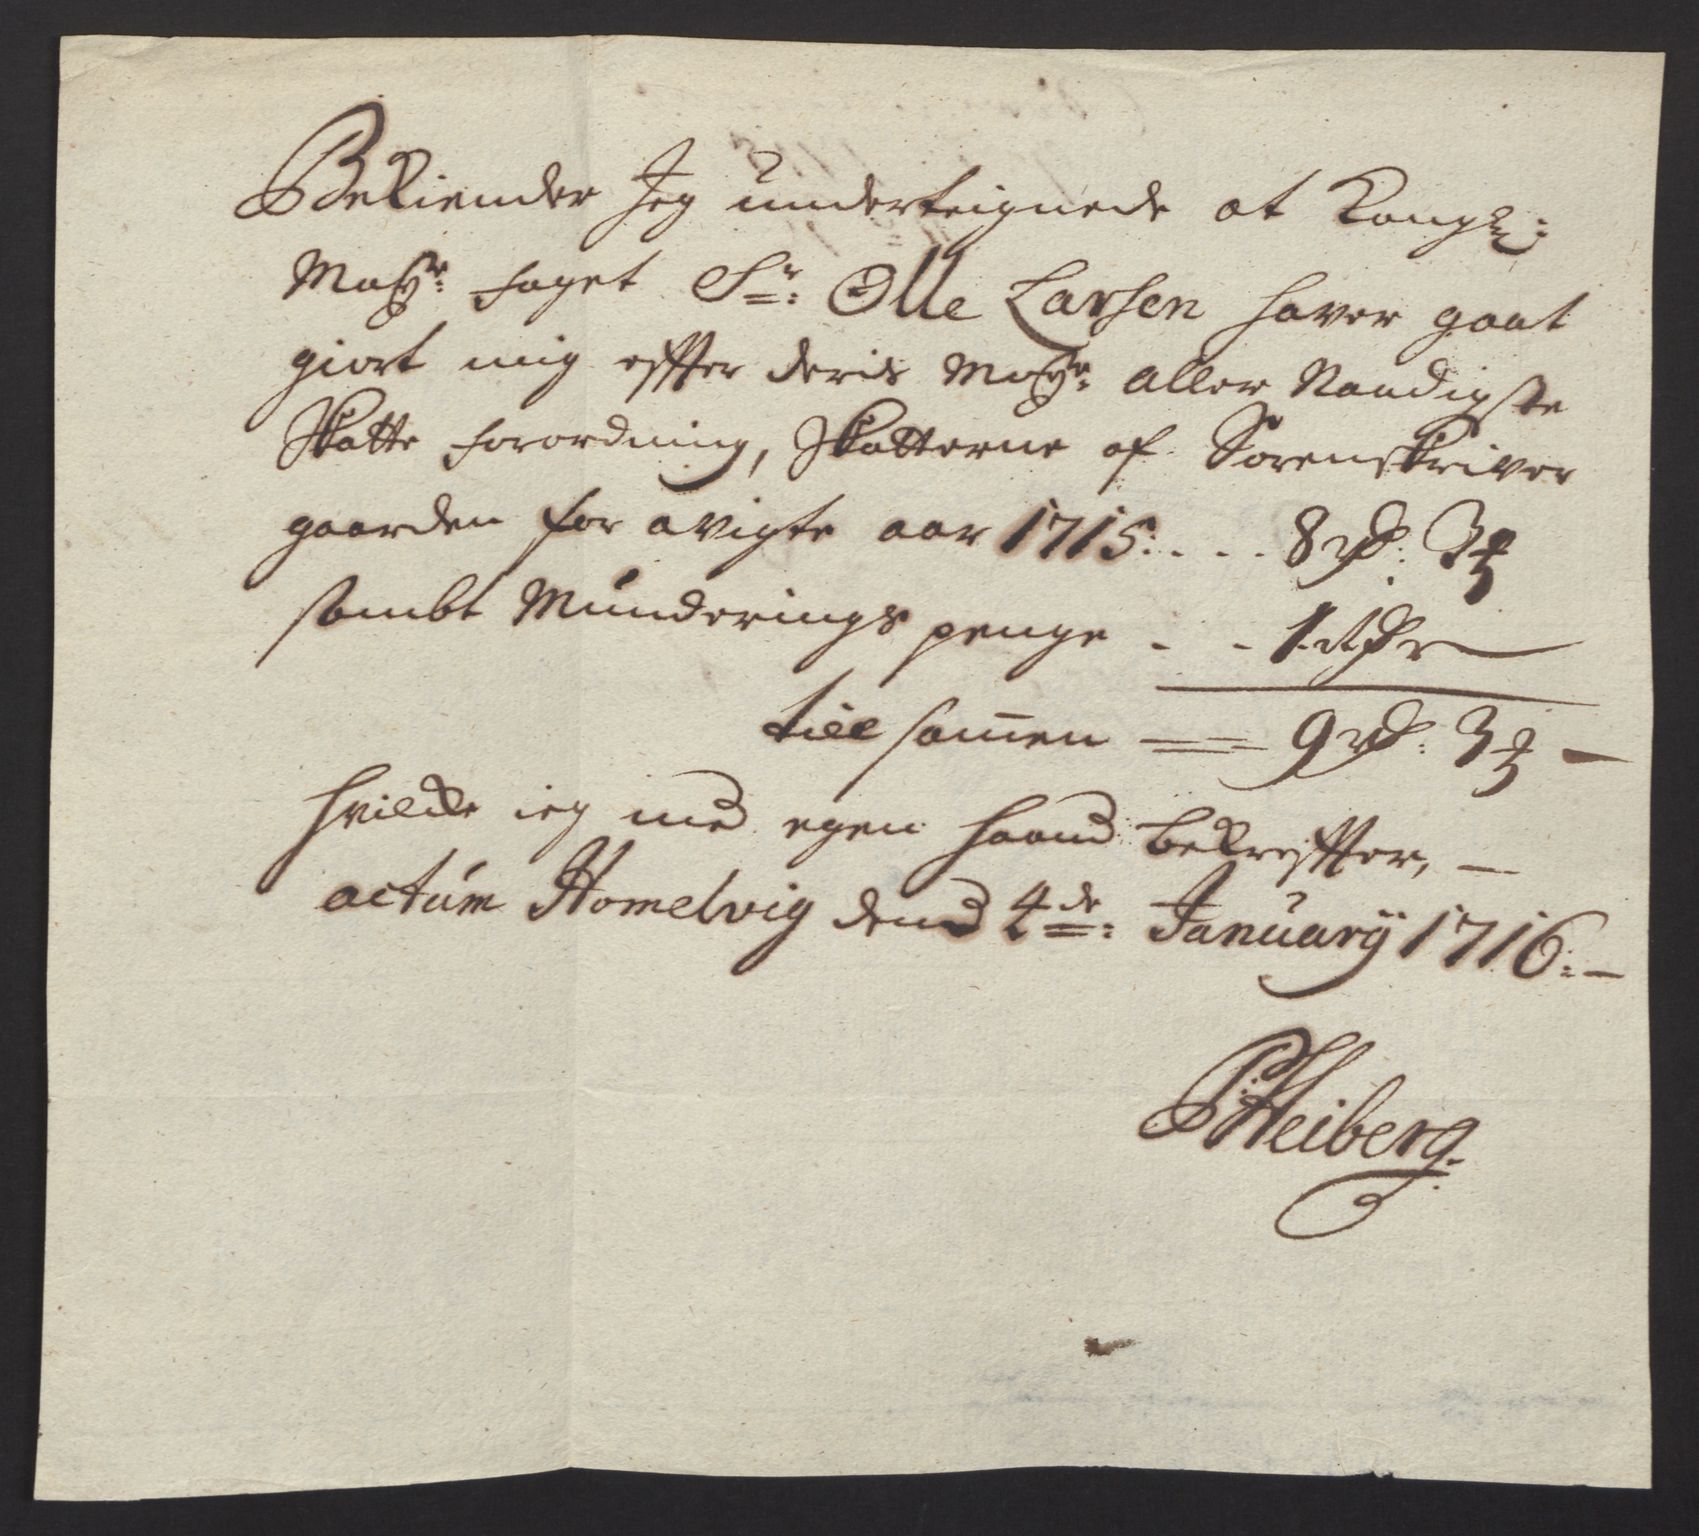 Bekiender Jeg underteignede at Kongl:
Maÿts: foget Sr: Olle Larsen haver gaat
giort mig effter deris Maÿts: aller Naadigste
Skatte forordning, Skatterne af Sorenskriver
gaarden for avigte aar 1715: . . . 8 rd: 3 ß
sambt Munderings penge . . 1. Rdr
till samen == 9 rd: 3 ß –
hvilcke ieg med egen haand bekreffter, –
actum Homelvig dend 4de: Januarÿ 1716: –
P: Heiberg.